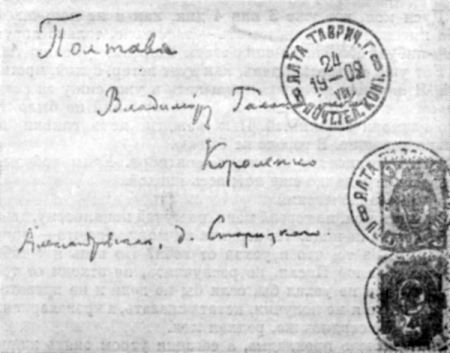 Полтава
Владиміру
Короленко
Александровская, д. Старицкого.
ЯЛТА ТАВРИЧ. Г.
24
19 02
VIII
ПОЧТ.ТЕЛ. КОНТ.
ЯЛТА